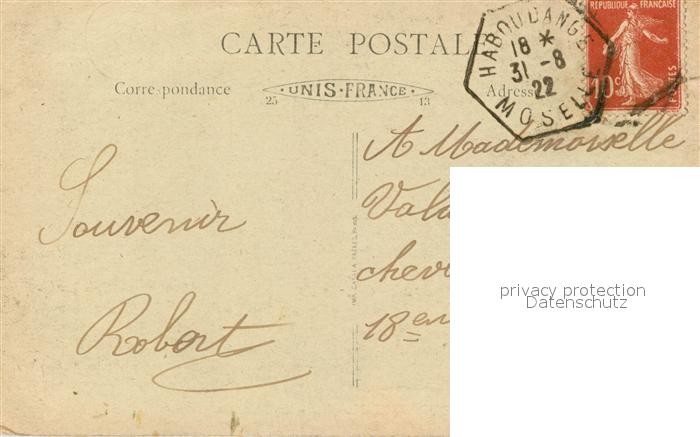 CARTE POSTALE
Corre·pondance
UNIS·FRANCE
25
13
Adresse
HABOUDANGE
18 *
31-8
22
MOSELLE
RÉPUBLIQUE FRANÇAISE
10c
POSTES
A Mademoiselle
Souvenir
Robert
18em
privacy protection
Datenschutz